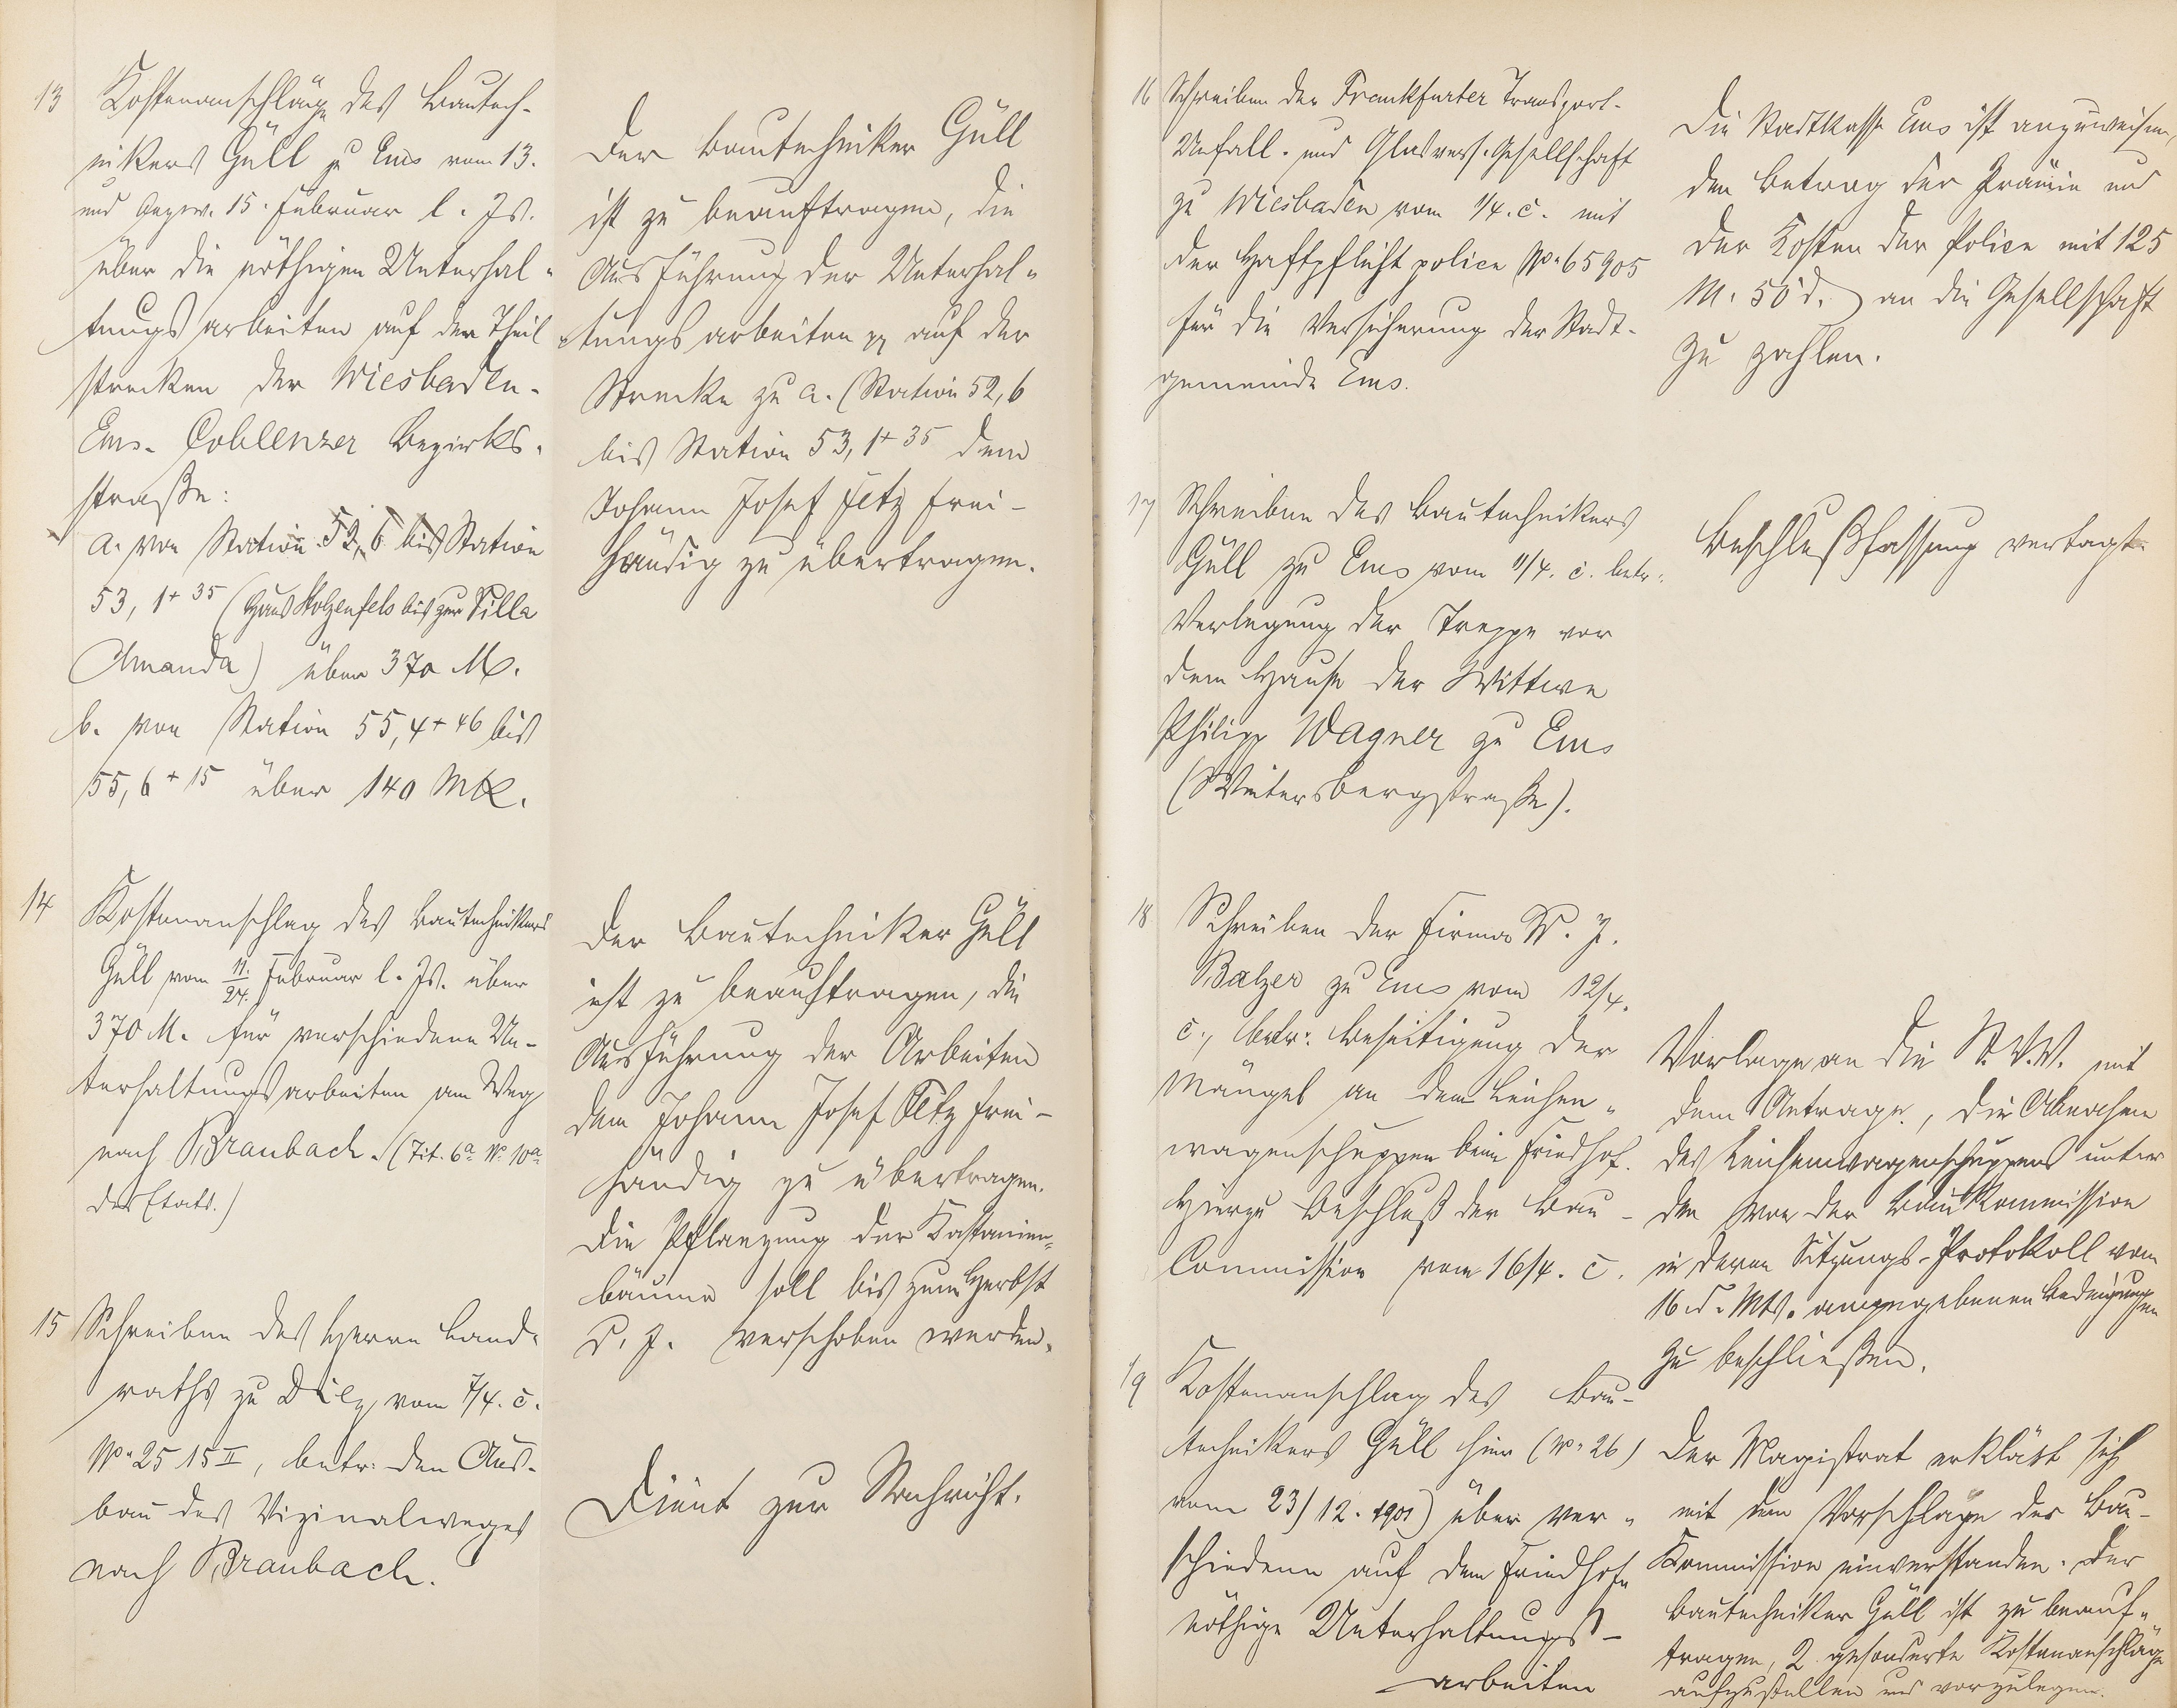 13 Kostenanschläge des Bautech-
nikers Güll zu Ems vom 13.
und bezw. 15. Februar l. Js.
über die nöthigen Unterhal-
tungsarbeiten auf den Theil-
strecken der Wiesbaden-
Ems-Coblenzer Bezirks-
straße:
a. von Station 52,6 bis Station
53,1+35 (Haus Stolzenfels bis zur Villa
Amanda) über 370 M.
b. von Station 55,4+46 bis
55,6+15 über 140 Mk.
Der Bautechniker Güll
ist zu beauftragen, die
Ausführung der Unterhal-
tungsarbeiten pp auf der
Strecke zu a. (Station 52,6
bis Station 53,1+35 dem
Johann Josef Fetz frei-
händig zu übertragen.
14 Kostenanschlag des Bautechnikers
Güll vom 11./24. Februar l. Js. über
370 M. für verschiedene Un-
terhaltungsarbeiten am Weg
nach Braubach. (Tit. 6a No 10a
des Etats.)
Der Bautechniker Güll
ist zu beauftragen, die
Ausführung der Arbeiten
dem Johann Josef Fetz frei-
händig zu übertragen.
Die Pflanzung der Kastanien-
bäume soll bis zum Herbst
d. J. verschoben werden.
15 Schreiben des Herrn Land-
raths zu Diez vom 7/4. c.
No 2515 II, betr. den Aus-
bau des Vizinalweges
nach Braubach.
Dient zur Nachricht.
16 Schreiben der Frankfurter Transport-
Unfall- und Glasvers.-Gesellschaft
zu Wiesbaden vom 1/4. c. mit
der Haftpflichtpolice No 65905
für die Versicherung der Stadt-
gemeinde Ems.
Die Stadtkasse Ems ist anzuweisen,
den Betrag der Prämie und
der Kosten der Police mit 125
M. 50 d. an die Gesellschaft
zu zahlen.
17 Schreiben des Bautechnikers
Güll zu Ems vom 11/4. c. betr.
Verlegung der Treppe vor
dem Hause der Wittwe
Philipp Wagner zu Ems
(Wintersbergstraße).
Beschlußfassung vertagt.
18 Schreiben der Firma W. J.
Balzer zu Ems vom 12/4.
c., betr. Beseitigung der
Mängel an dem Leichen-
wagenschuppen beim Friedhof.
Hierzu Beschluß der Bau-
Commission vom 16/4. c.
Vorlage an die St.V.V. mit
dem Antrage, die Abnahme
des Leichenwagenschuppens unter
den von der Baukommission
in deren Sitzungs-Protokoll vom
16. d. Mts. angegebenen Bedingungen
zu beschließen.
19 Kostenanschlag des Bau-
technikers Güll hier (No 26)
vom 23/12. 1901) über ver-
schiedene auf dem Friedhofe
nöthige Unterhaltungs-
arbeiten
Der Magistrat erklärt sich
mit dem Vorschlage der Bau-
Kommission einverstanden. Der
Bautechniker Güll ist zu beauf-
tragen, 2 gesonderte Kostenanschläge
aufzustellen und vorzulegen.